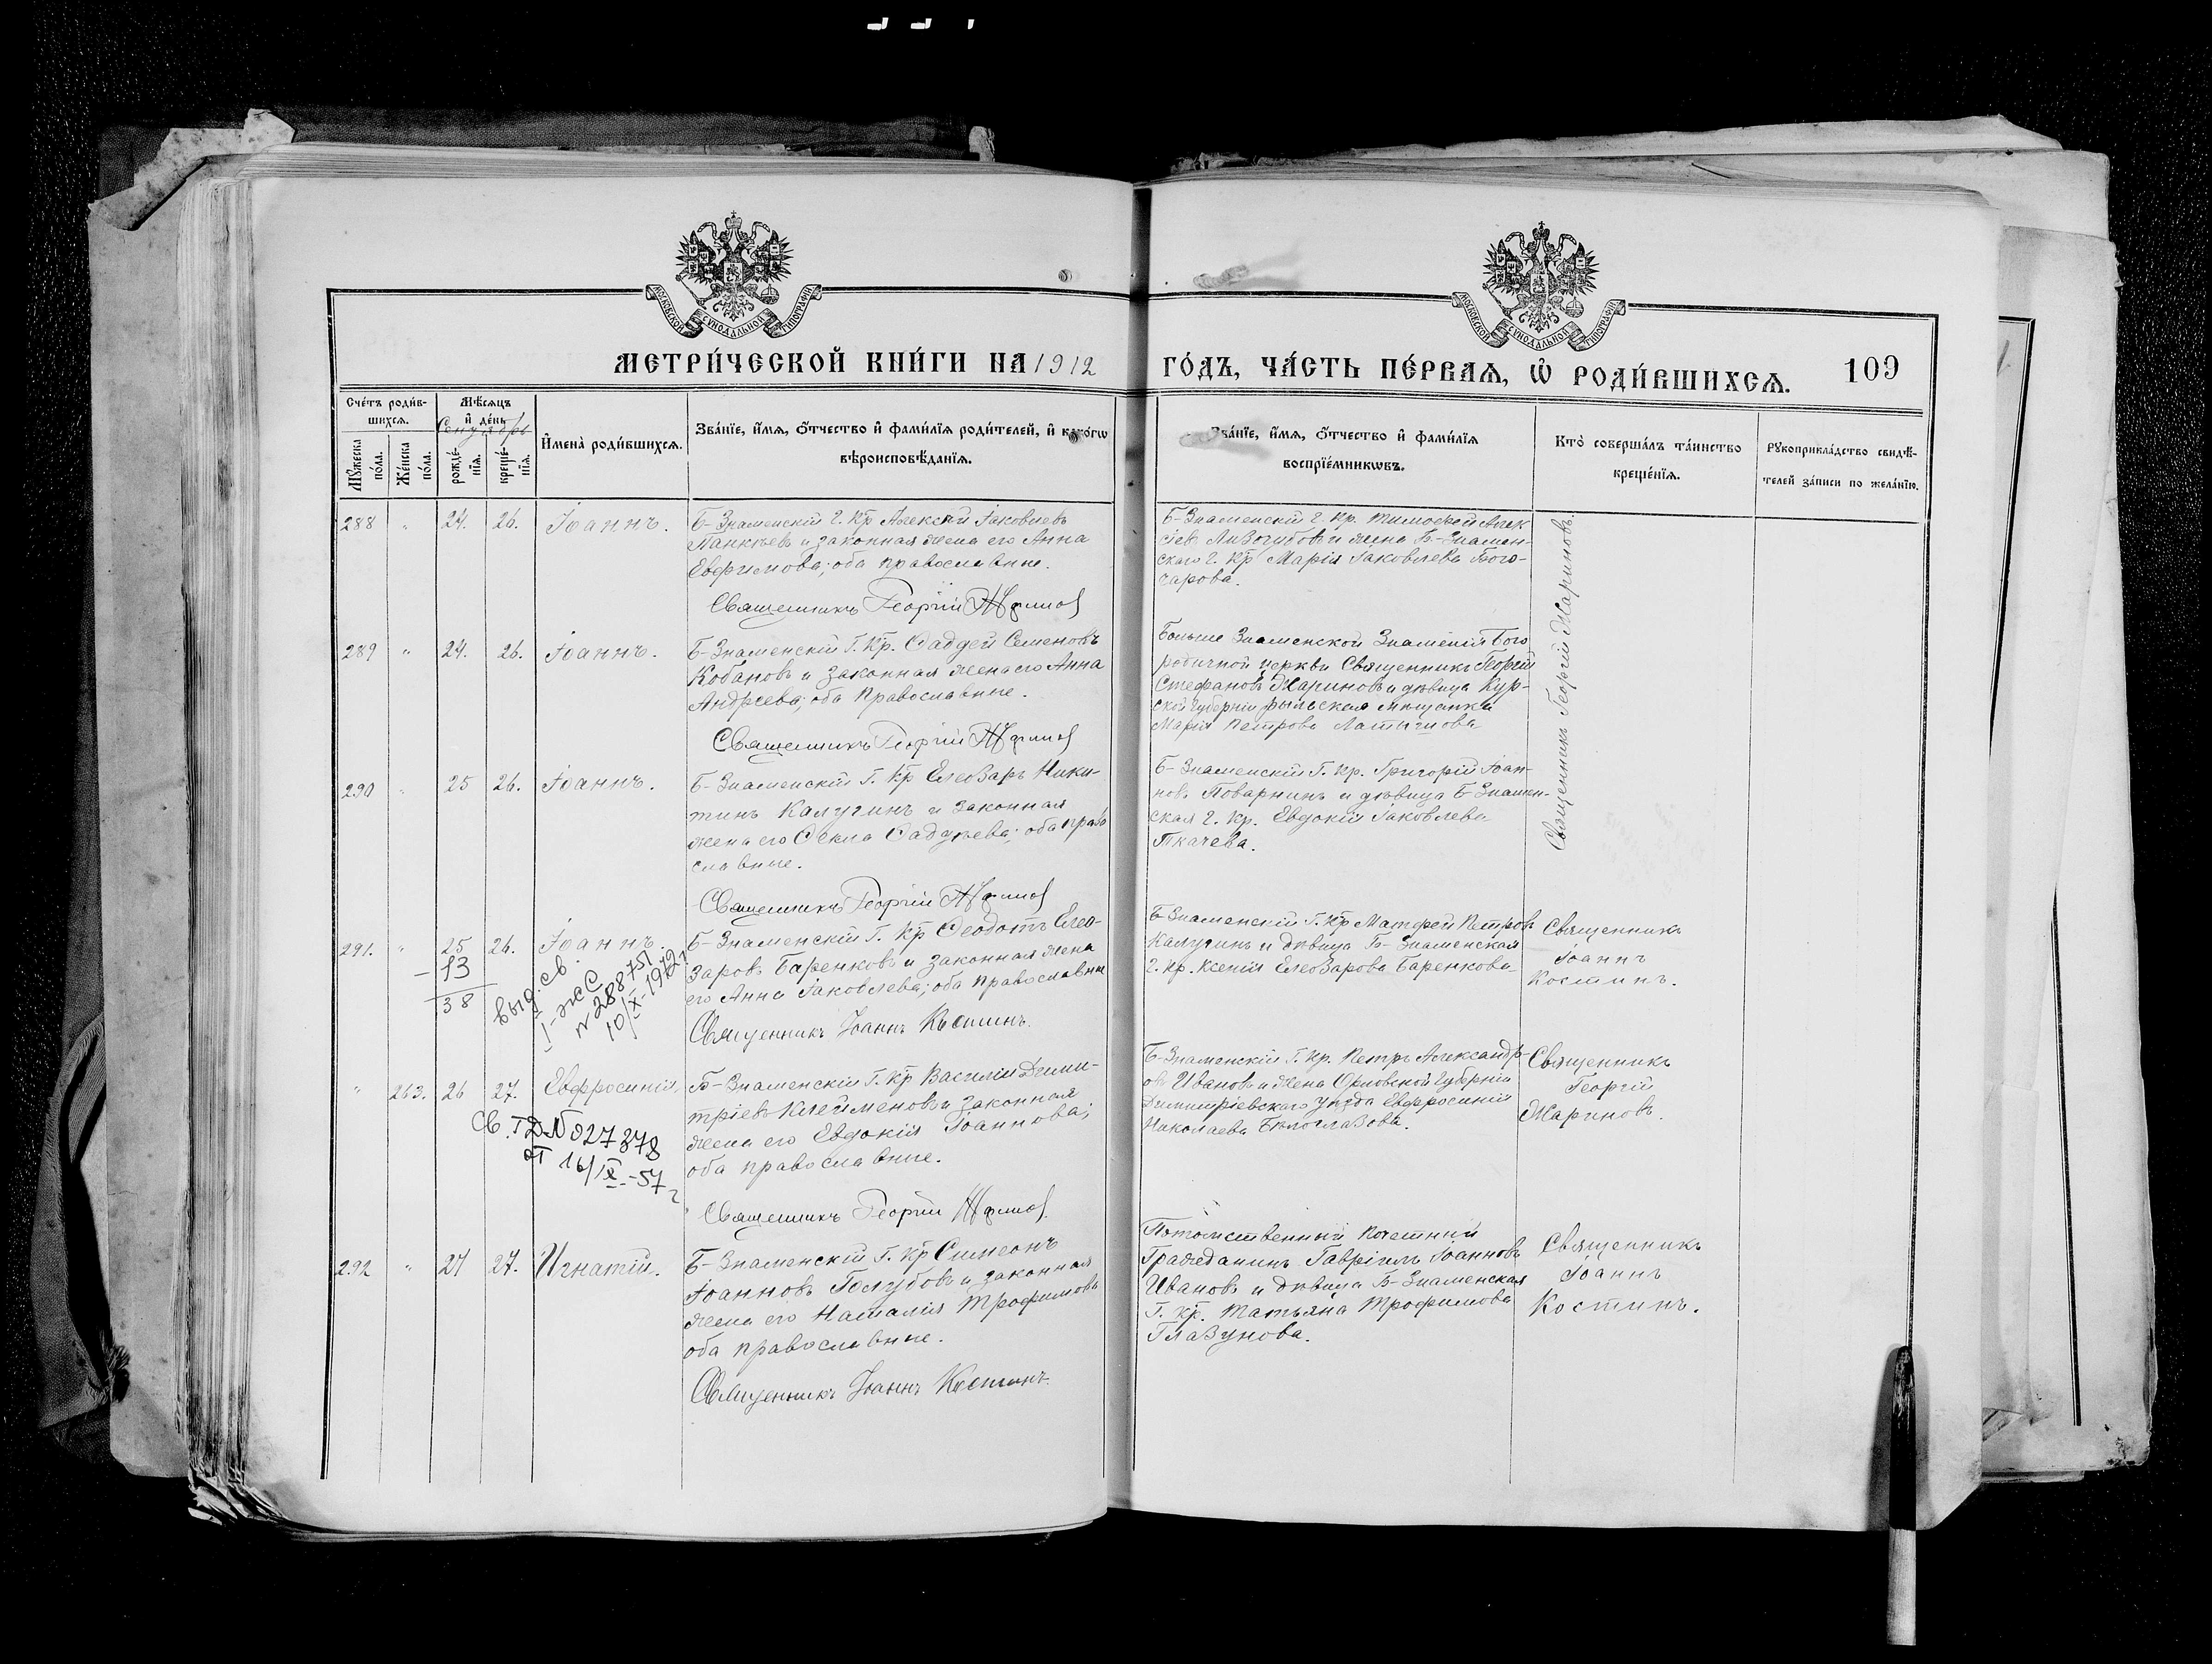 МОСКОВСКОЙ СѴНОДАЛЬНОЙ ТИПОГРАФІИ
МОСКОВСКОЙ СѴНОДАЛЬНОЙ ТИПОГРАФІИ
МЕТРИ́ЧЕСКОЙ КНИ́ГИ НА 1912 ГО́ДЪ, ЧА́СТЬ ПЕ́РВАЯ, Ѡ҆ РОДИ́ВШИХСЯ. 109
Сче́тъ роди́в-
шихся.
Мꙋ́жеска по́ла.
Же́нска по́ла.
Мѣ́сяцъ
и҆ де́нь
Сентябрь
рожде́-
нїя.
креще́-
нїя.
И҆мена̀ роди́вшихся.
Зва́нїе, и҆́мя, ѻ҆́тчество и҆ фами́лїя роди́телей, и҆ како́гѡ
вѣроисповѣ́данїя.
Зва́нїе, и҆́мя, ѻ҆́тчество и҆ фами́лїя
воспрїе́мникѡвъ.
Кто̀ соверша́лъ та́инство
креще́нїя.
Рꙋкоприкла́дство свидѣ́-
телей за́писи по жела́нїю.
288 " 24. 26. Іоаннъ.
Б-Знаменскій г. Кр Алексѣй Іаковлевъ
Панкѣевъ и законная жена его Анна
Евфимова; оба православные.
Священникъ Георгій
Б-Знаменскій г. Кр. Тимофей Алек
сѣев Лизогубовъ и жена Б-Знамен-
скаго г. Кр Марія Іаковлева Бого-
чарова.
Священникъ Георгій Жариновъ.
289 " 24. 26. Іоаннъ.
Б-Знаменскій Г. Кр. Фаддей Семеновъ
Кобановъ и законная жена его Анна
Андреева; оба православные.
Священникъ Георгій
Больше Знаменской Знаменія Бого
родичной церкви Священникъ Георгій
Стефановъ Жариновъ и дѣвица Кур-
ской губерніи рыльская мѣщанка
Марія Петрова Латышова
290 " 25 26. Іоаннъ.
Б-Знаменскій Г. Кр Елеозаръ Ники-
тинъ Калугинъ и законная
жена его Фекла Фаддѣева; оба право
славные.
Священникъ Георгій
Б-Знаменскій Г. Кр. Григорій Іоан-
новъ Поварнинъ и дѣвица Б-Знамен-
ская г. Кр. Евдокія Іаковлева
Ткачева.
291. " 25 26. Іоаннъ.
-13
38
выд. св.
I-жС
№ 288751
10/X-1972г
Б-Знаменскій Г. Кр Феодотъ Елео-
заровъ Баренковъ и законная жена
его Анна Іаковлева; оба православны
Священникъ Іоаннъ Костинъ.
Б-Знаменскій Г. Кр Матфей Петров
Калугинъ и дѣвица Б-Знаменская
г. Кр. Ксенія Елеозарова Баренкова
Священникъ
Іоаннъ
Костинъ.
" 263. 26 27. Евфросинія.
Св. №027378
от 16/IX-57г
Б-Знаменскій Г. Кр Василій Дими-
тріевъ Клейменовъ и законная
жена его Евдокія Іоаннова;
оба православные.
Священникъ Георгій
Б-Знаменскій Г. Кр. Петръ Александр-
овъ Ивановъ и жена Орловской губерніи
Димитріевскаго уѣзда Евфросинія
Николаева Бѣлоглазова.
Священникъ
Георгій
Жариновъ.
292 " 27 27. Игнатій.
Б-Знаменскій Г. Кр Симеонъ
Іоанновъ Голубовъ и законная
жена его Наталія Трофимова
оба православные.
Священникъ Іоаннъ Костинъ
Потомственный почетный
Гражданинъ Гавріилъ Іоанновъ
Ивановъ и дѣвица Б-Знаменская
Г. Кр. Татьяна Трофимова
Глазунова.
Священникъ
Іоаннъ
Костинъ.